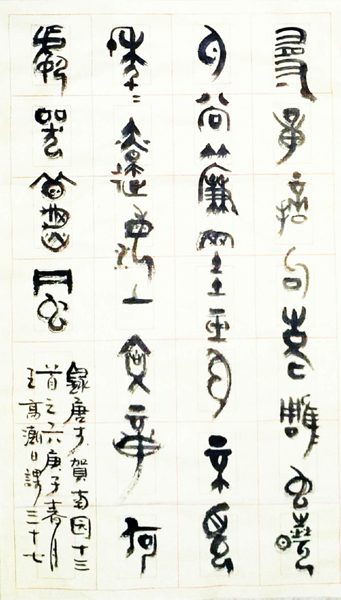 尋章摘句老雕虫曉
月當簾掛玉弓不見
年〻遼海上文章何
處哭秋風
錄唐李賀南园十三
首之六庚子春月
王高日課三十七